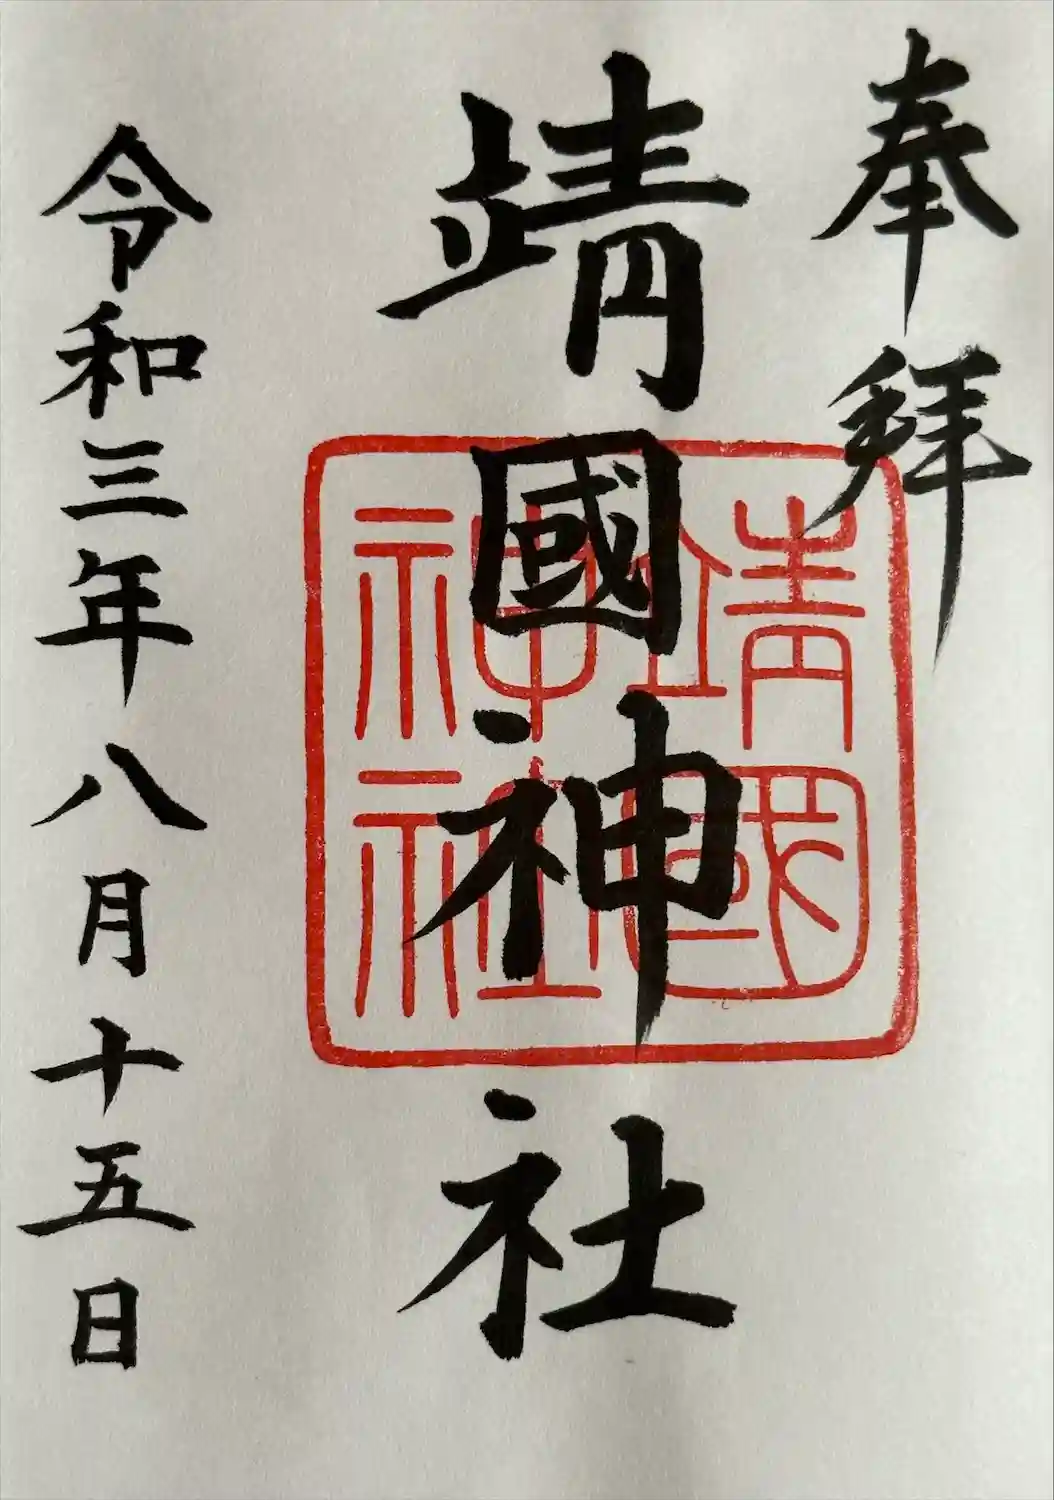 奉拜
靖國神社
靖國
神社
令和三年八月十五日